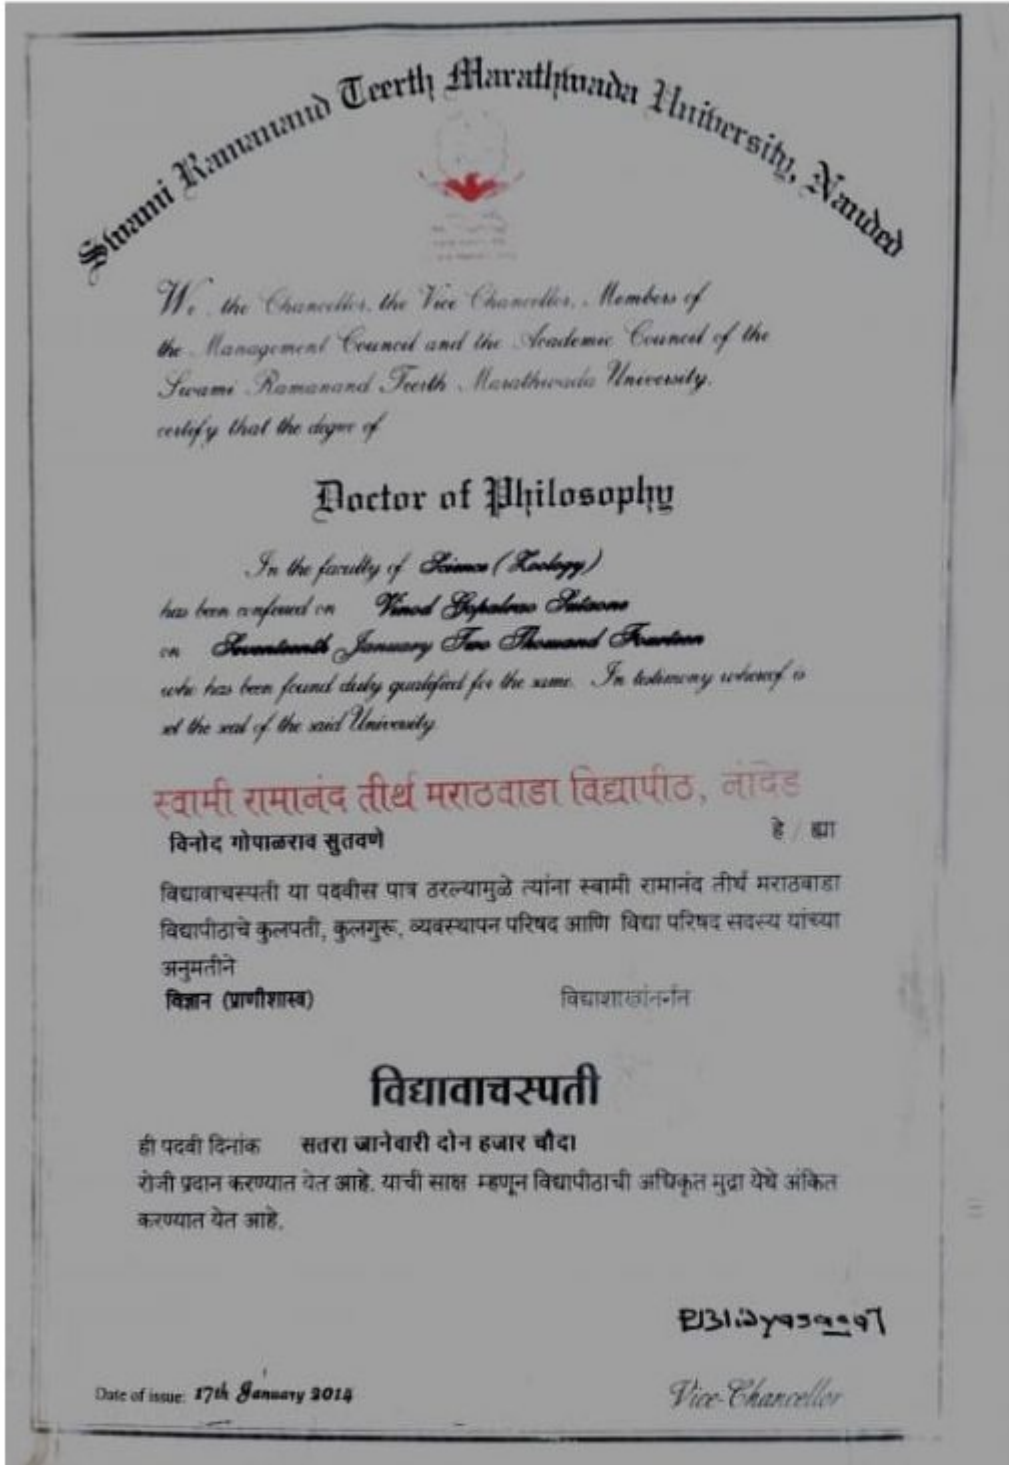 Swami Ramanand Teerth Marathwada University, Nanded
We, the Chancellor, the Vice Chancellor, Members of
the Management Council and the Academic Council of the
Swami Ramanand Teerth Marathwada University,
certify that the degree of
Doctor of Philosophy
In the faculty of Science (Zoology)
has been conferred on Vinod Gopalrao Sutaone
on Seventeenth January Two Thousand Fourteen
who has been found duly qualified for the same. In testimony whereof is
set the seal of the said University.
स्वामी रामानंद तीर्थ मराठवाडा विद्यापीठ, नांदेड
विनोद गोपाळराव सुतवणे हे / ह्या
विद्यावाचस्पती या पदवीस पात्र ठरल्यामुळे त्यांना स्वामी रामानंद तीर्थ मराठवाडा
विद्यापीठाचे कुलपती, कुलगुरू, व्यवस्थापन परिषद आणि विद्या परिषद सदस्य यांच्या
अनुमतीने
विज्ञान (प्राणीशास्त्र) विद्याशाखांतर्गत
विद्यावाचस्पती
ही पदवी दिनांक सतरा जानेवारी दोन हजार चौदा
रोजी प्रदान करण्यात येत आहे. याची साक्ष म्हणून विद्यापीठाची अधिकृत मुद्रा येथे अंकित
करण्यात येत आहे.
Date of issue: 17th January 2014 Vice-Chancellor